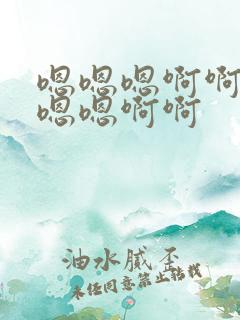 嗯嗯嗯啊啊
嗯嗯啊啊
油水腻歪
未任同意禁止转载